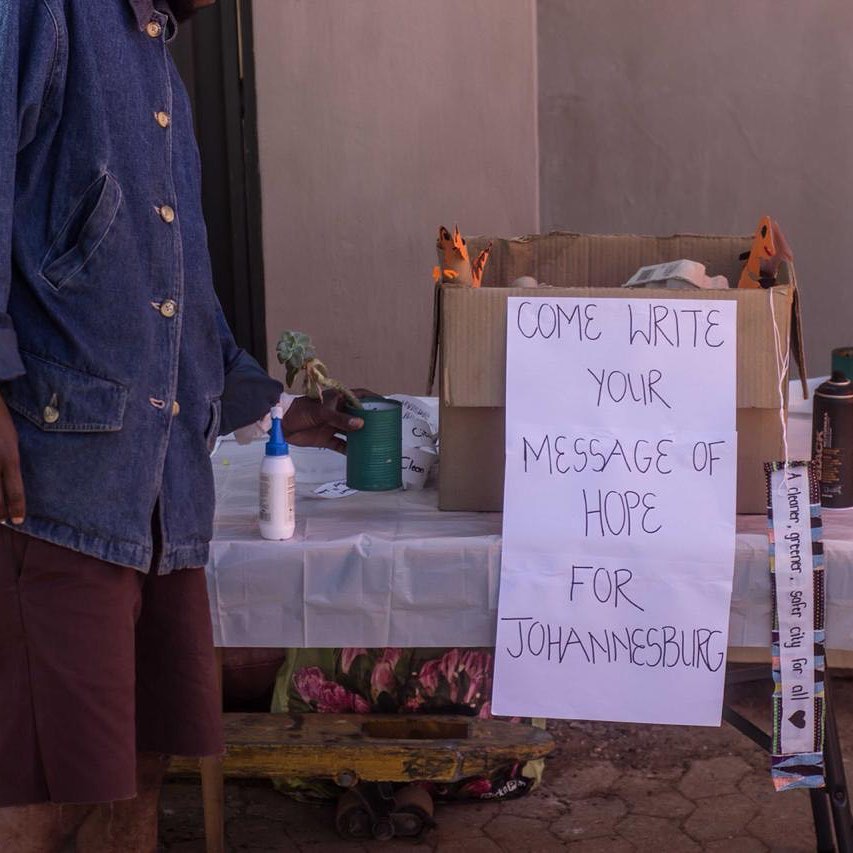 COME WRITE
YOUR
MESSAGE OF
HOPE
FOR
JOHANNESBURG
A cleaner, greener, safer city for all ♥
Clean